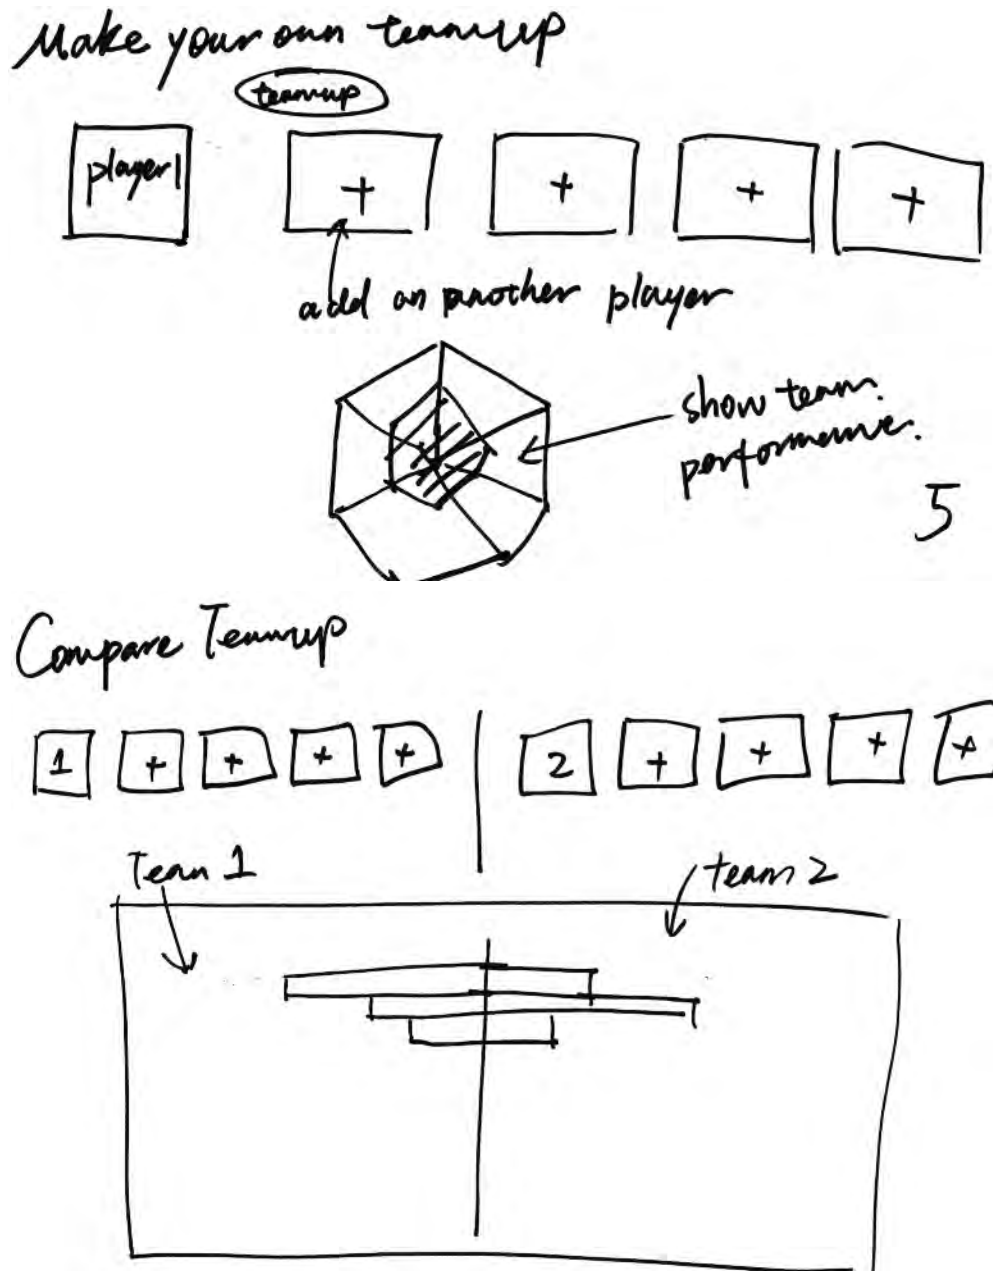 Make your own teamup
teamup
player1
+
+
+
+
add an another player
show team.
performance.
5
Compare Teamup
1
+
+
+
+
2
+
+
+
+
Team 1
team 2